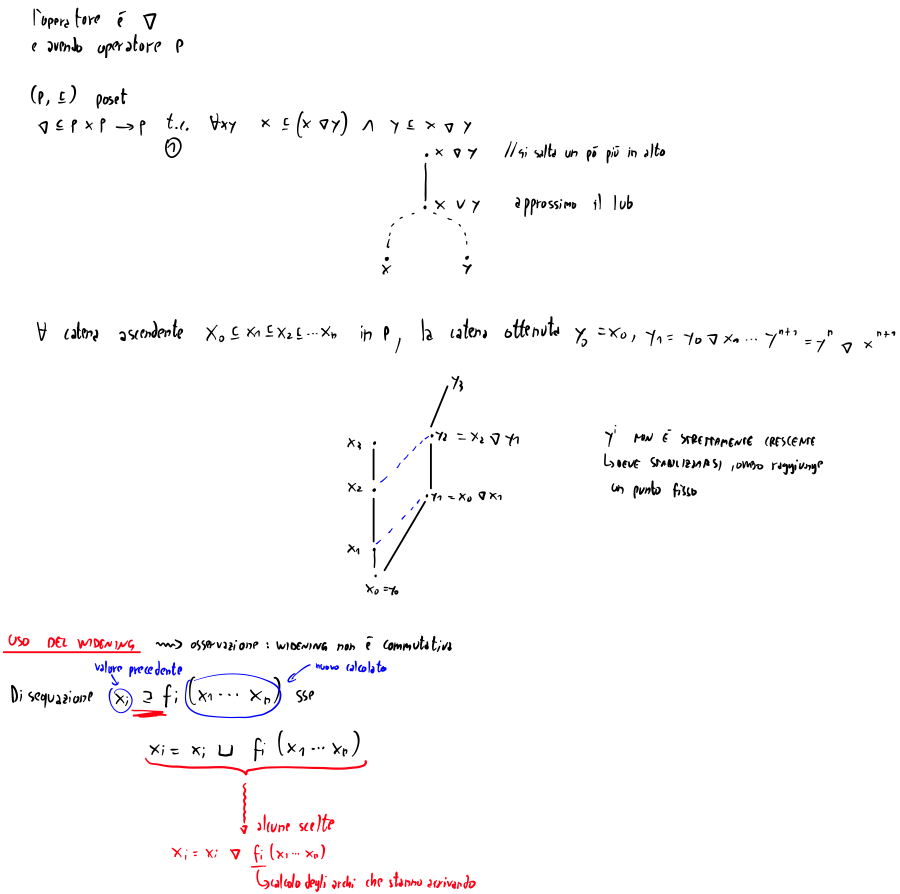 l'operatore é ∇
e avendo operatore P
(P, ⊑) poset
∇ ⊆ P × P → P t.c. ∀xy x ⊑ (x ∇ y) ∧ y ⊑ x ∇ y
①
x ∇ y //si salta un pó piú in alto
x ∨ y approssimo il lub
x y
∀ catena ascendente x₀ ⊑ x₁ ⊑ x₂ ⊑ ... xₙ in P, la catena ottenuta y₀ = x₀, y₁ = y₀ ∇ x₁ ... yⁿ⁺¹ = yⁿ ∇ xⁿ⁺¹
y₃
x₃ y₂ = x₂ ∇ y₁
x₂ y₁ = x₀ ∇ x₁
x₁
x₀ = y₀
yⁱ NON É STRETTAMENTE CRESCENTE
↳ DEVE STABILIZZARSI, ovvero raggiunge
un punto fisso
USO DEL WIDENING ⟿ osservazione : WIDENING non é commutativa
valore precedente nuovo calcolato
Disequazione xᵢ ⊒ fᵢ (x₁ ... xₙ) sse
xᵢ = xᵢ ⊔ fᵢ (x₁ ... xₙ)
alcune scelte
xᵢ = xᵢ ∇ fᵢ (x₁ ... xₙ)
↳ calcolo degli archi che stanno arrivando